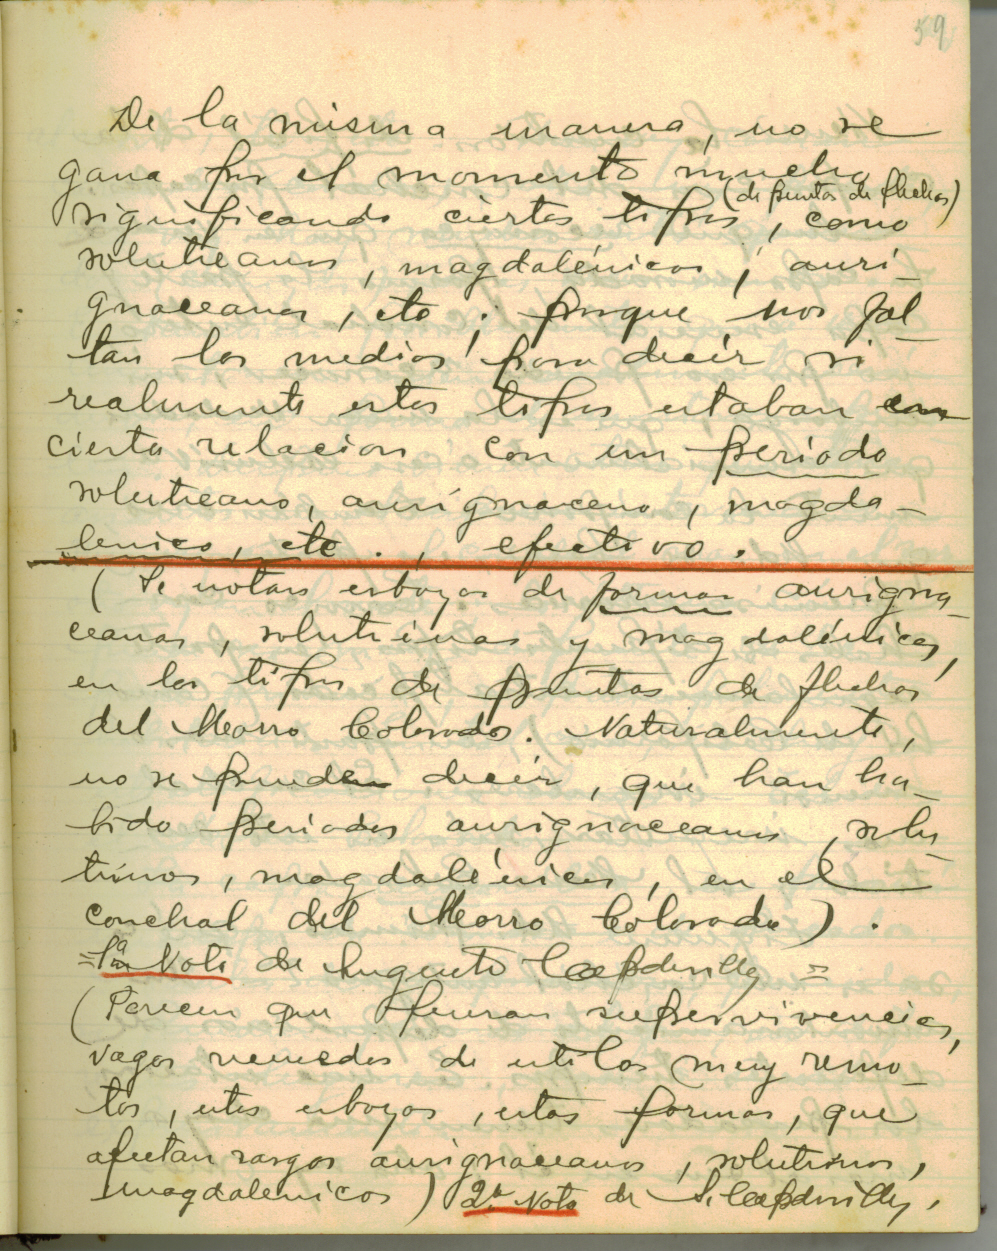 59
De la misma manera, no se
gana por el momento mucho
(de puntas de flechas)
significando ciertos tipos, como
solutreanos, magdalénicos, auri-
gnaceanos, etc.; porque nos fal-
tan los medios para decir si
realmente estos tipos estaban en
cierta relacion con un periodo
solutreano, aurignaceno, magda-
lenico, etc., efectivo.
(Se notan esbozos de formas aurigna-
ceanas, solutrinas y magdalénicas,
en los tipos de puntas de flechas
del Morro Colorado. Naturalmente,
no se pueden decir, que han ha-
bido periodos aurignaceanos, solu-
trinos, magdalénicos, en el
conchal del Morro Colorado).
=1ª Nota de Augusto Capdeville=
(Parecen que fueran supervivencias,
vagos remedos de utiles muy remo-
tos, estos esbozos, estas formas, que
afectan rasgos aurignaceanos, solutrinos,
magdalenicos) 2ª Nota de A. Capdeville.